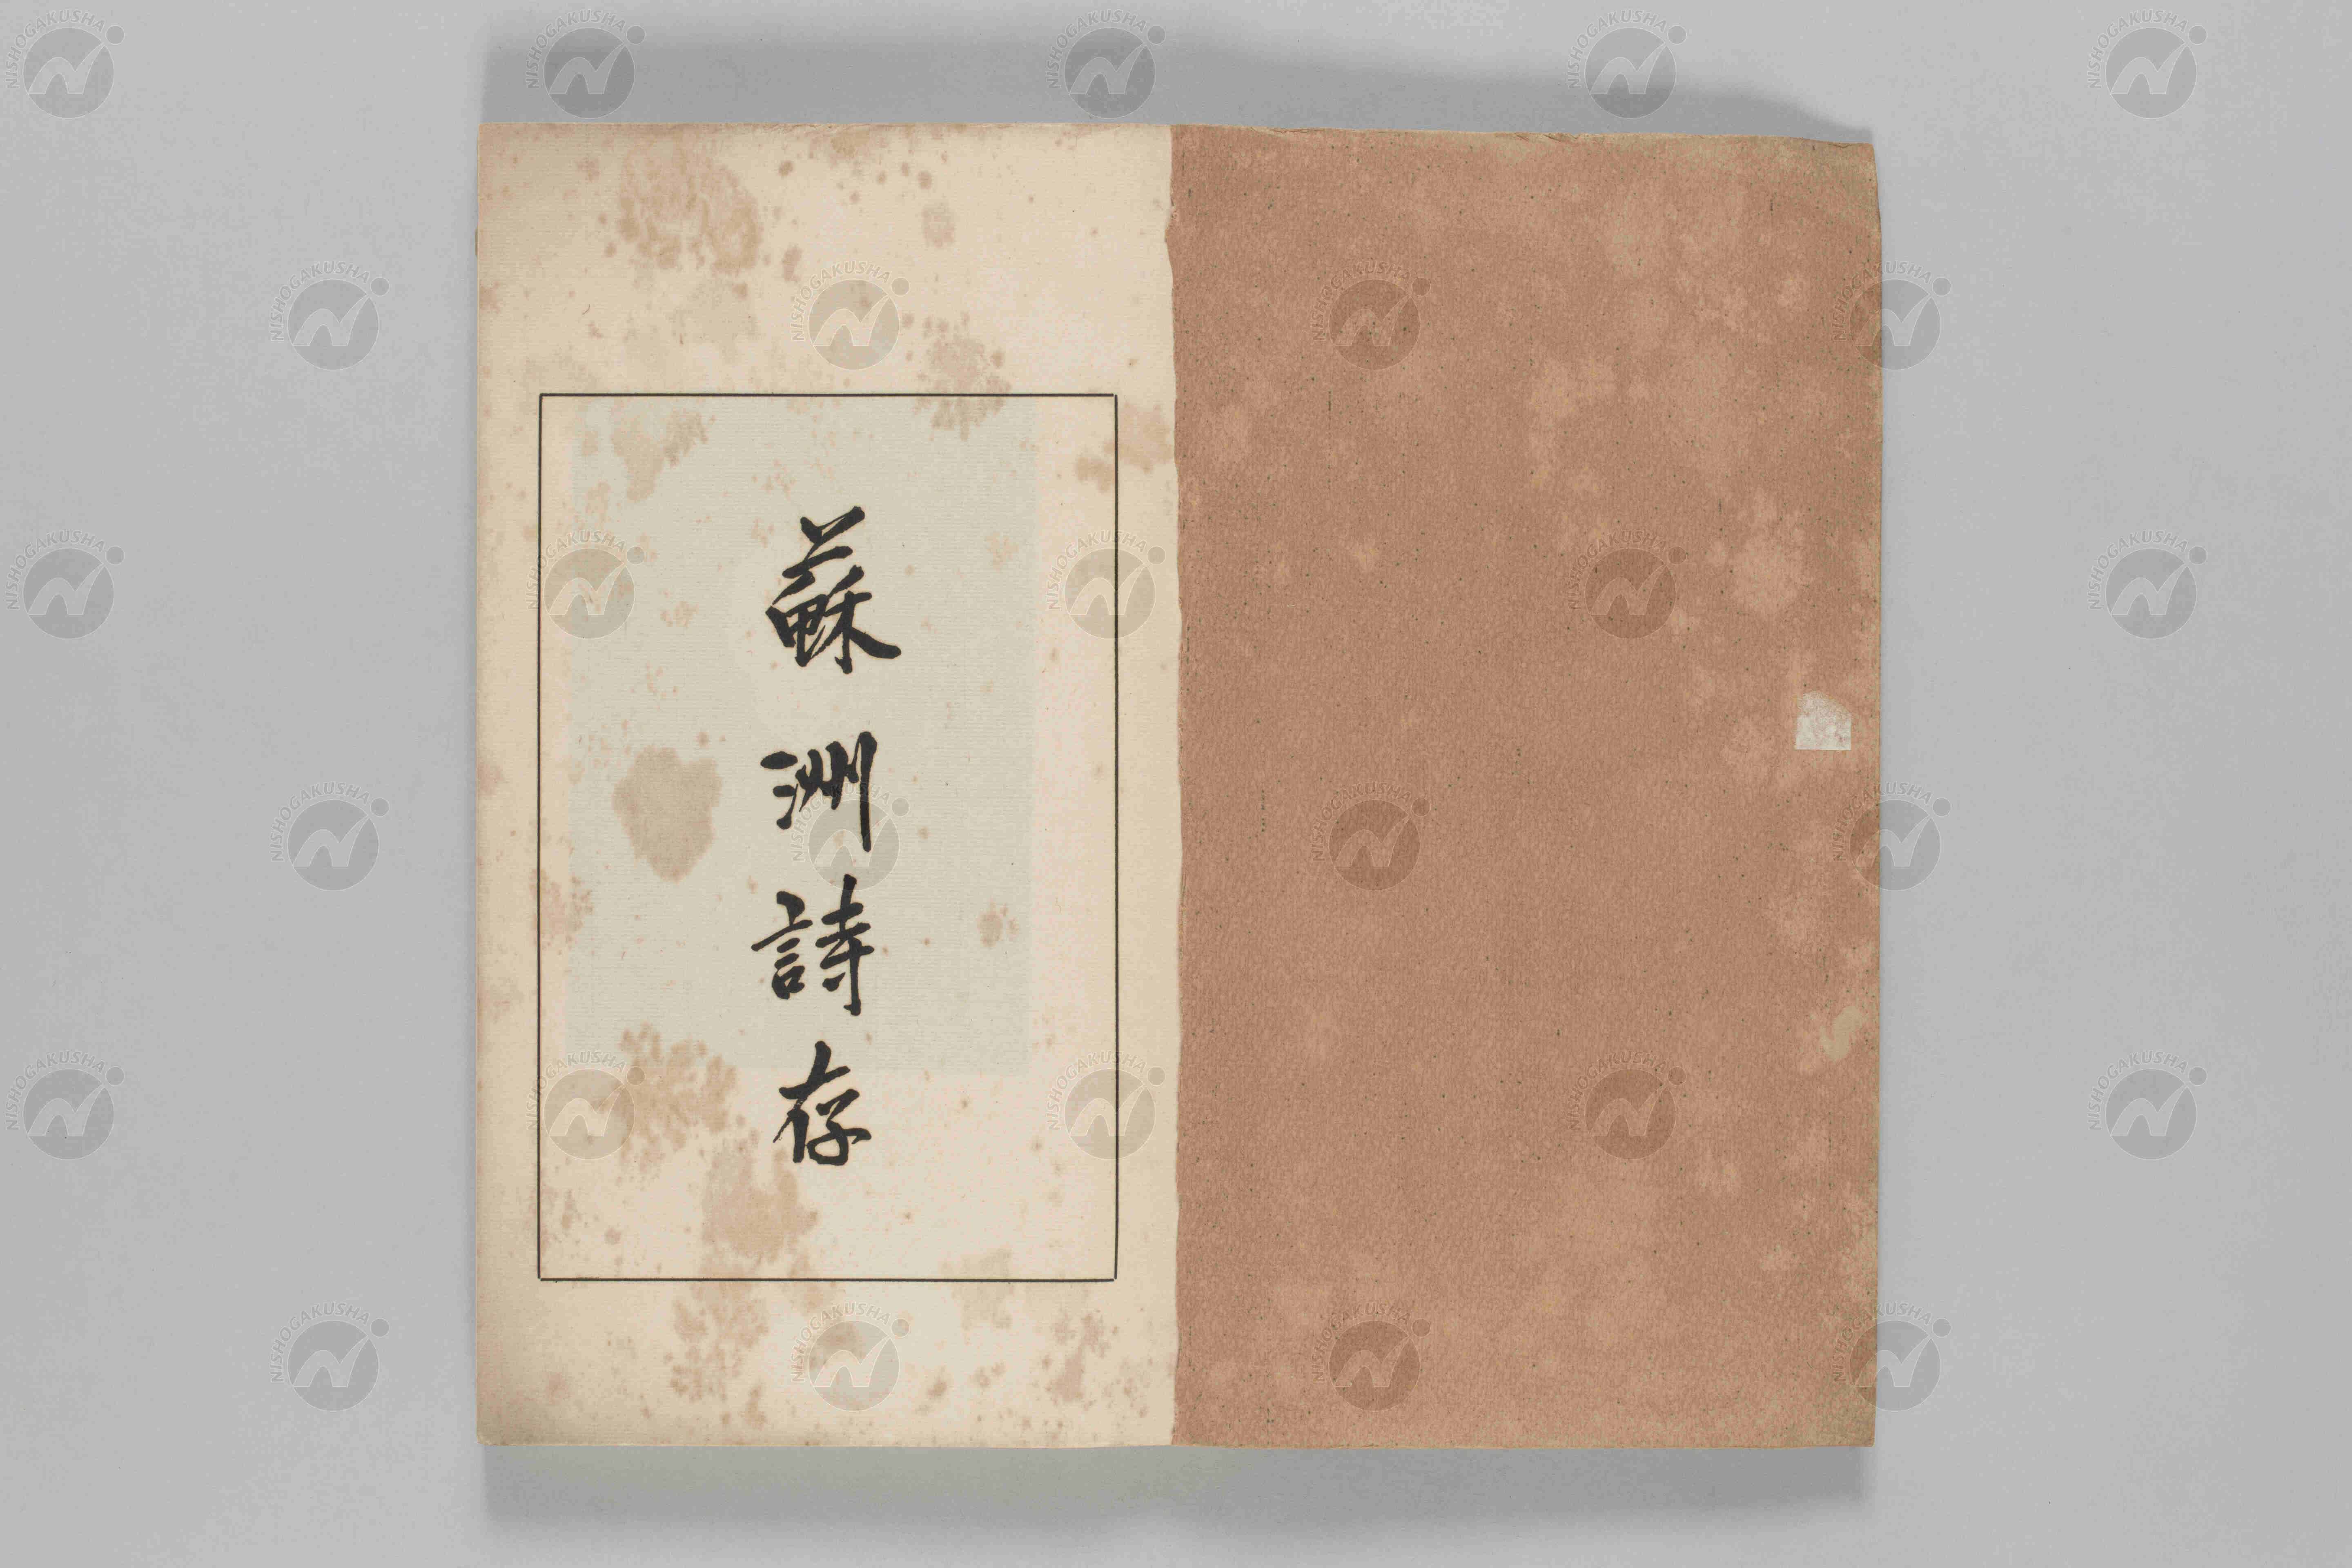 蘇洲詩存
NISHOGAKUSHA